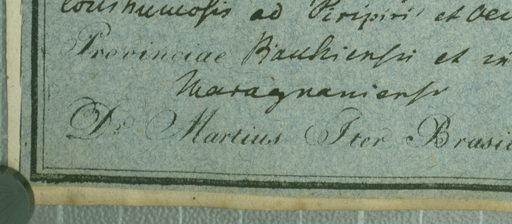 ad Piripiri et
Provinciae Bauhiensi et in
Maragnaniensi
Dr Martius Iter Brasil